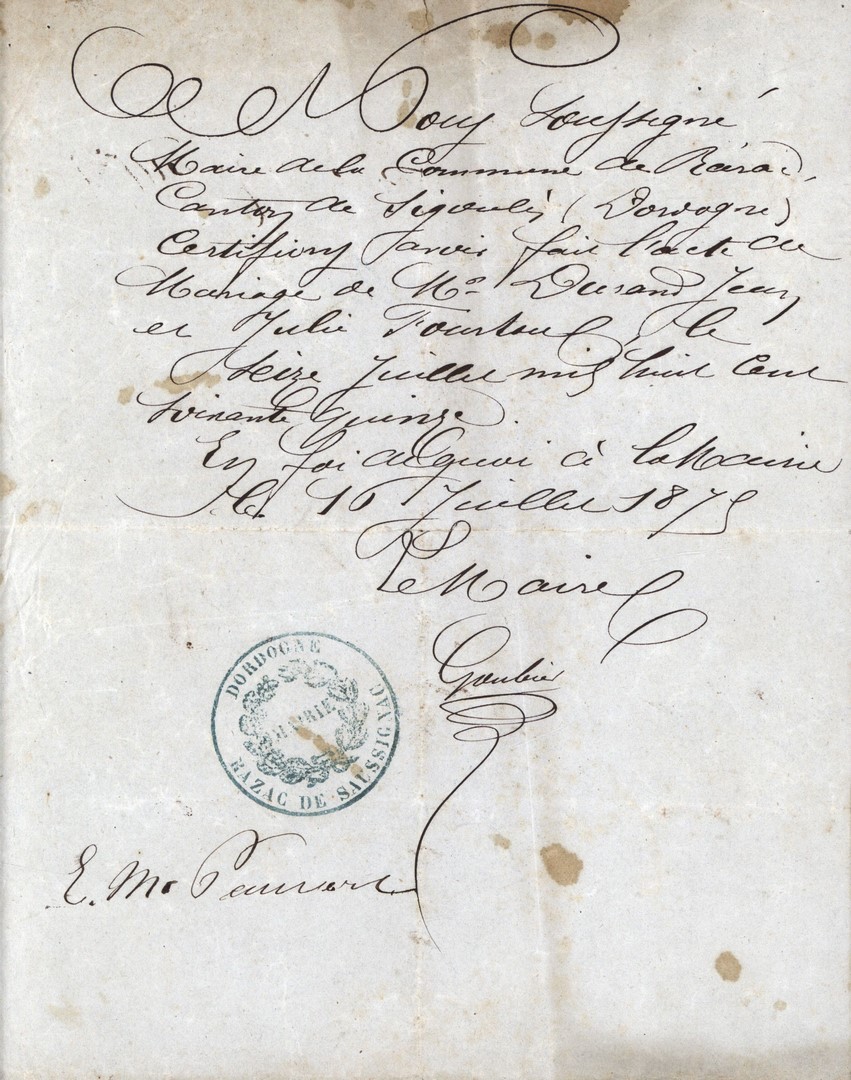 Nous Soussigné
Maire de la Commune de Razac,
Canton de Sigoulès (Dordogne)
Certifions avoir fait l'acte de
Mariage de Mr Durand Jean
et Julie Fourtou, le
Seize Juillet mil huit Cent
Soixante quinze.
En foi de quoi à la Mairie
le 16 Juillet 1875
Le Maire
Goubier
DORDOGNE
MAIRIE
RAZAC DE SAUSSIGNAC
E. M.